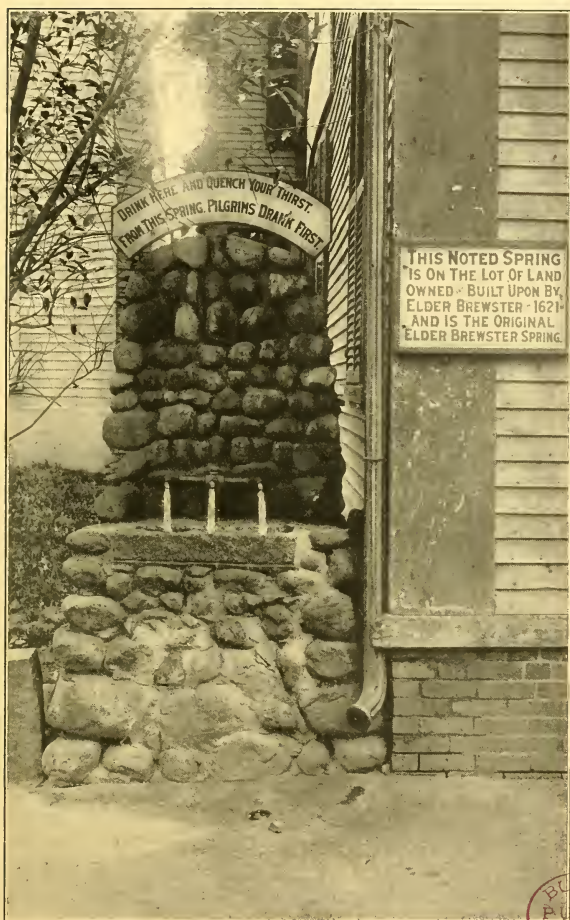 DRINK HERE AND QUENCH YOUR THIRST.
FROM THIS SPRING, PILGRIMS DRANK FIRST.
THIS NOTED SPRING
IS ON THE LOT OF LAND
OWNED - BUILT UPON BY
ELDER BREWSTER - 1621-
AND IS THE ORIGINAL
ELDER BREWSTER SPRING.